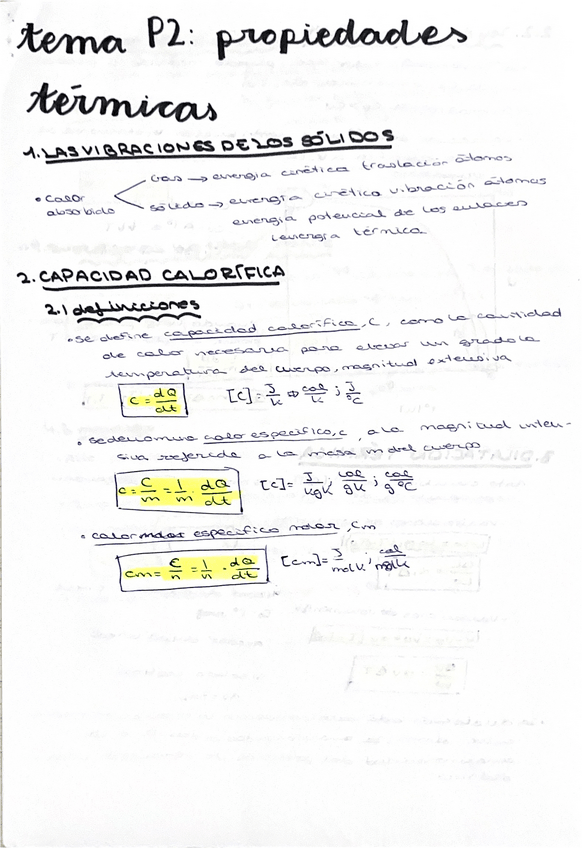 tema P2: propiedades
térmicas
1. LAS VIBRACIONES DE LOS SÓLIDOS
Gas → energía cinética traslación átomos
• Calor
absorbido
sólido → energía cinética vibración átomos
energía potencial de los enlaces
energía térmica
2. CAPACIDAD CALORÍFICA
2.1 definiciones
• se define capacidad calorífica, C, como la cantidad
de calor necesaria para elevar un grado la
temperatura del cuerpo, magnitud extensiva
C = dQ/dt [C] = J/K ⇒ cal/K ; J/°C
• se denomina calor específico, c, a la magnitud inten-
siva referida a la masa m del cuerpo
c = C/m = 1/m · dQ/dt [c] = J/kgK ; cal/gK ; cal/g°C
• calor específico molar, Cm
Cm = C/n = 1/n · dQ/dt [Cm] = J/molK ; cal/molK